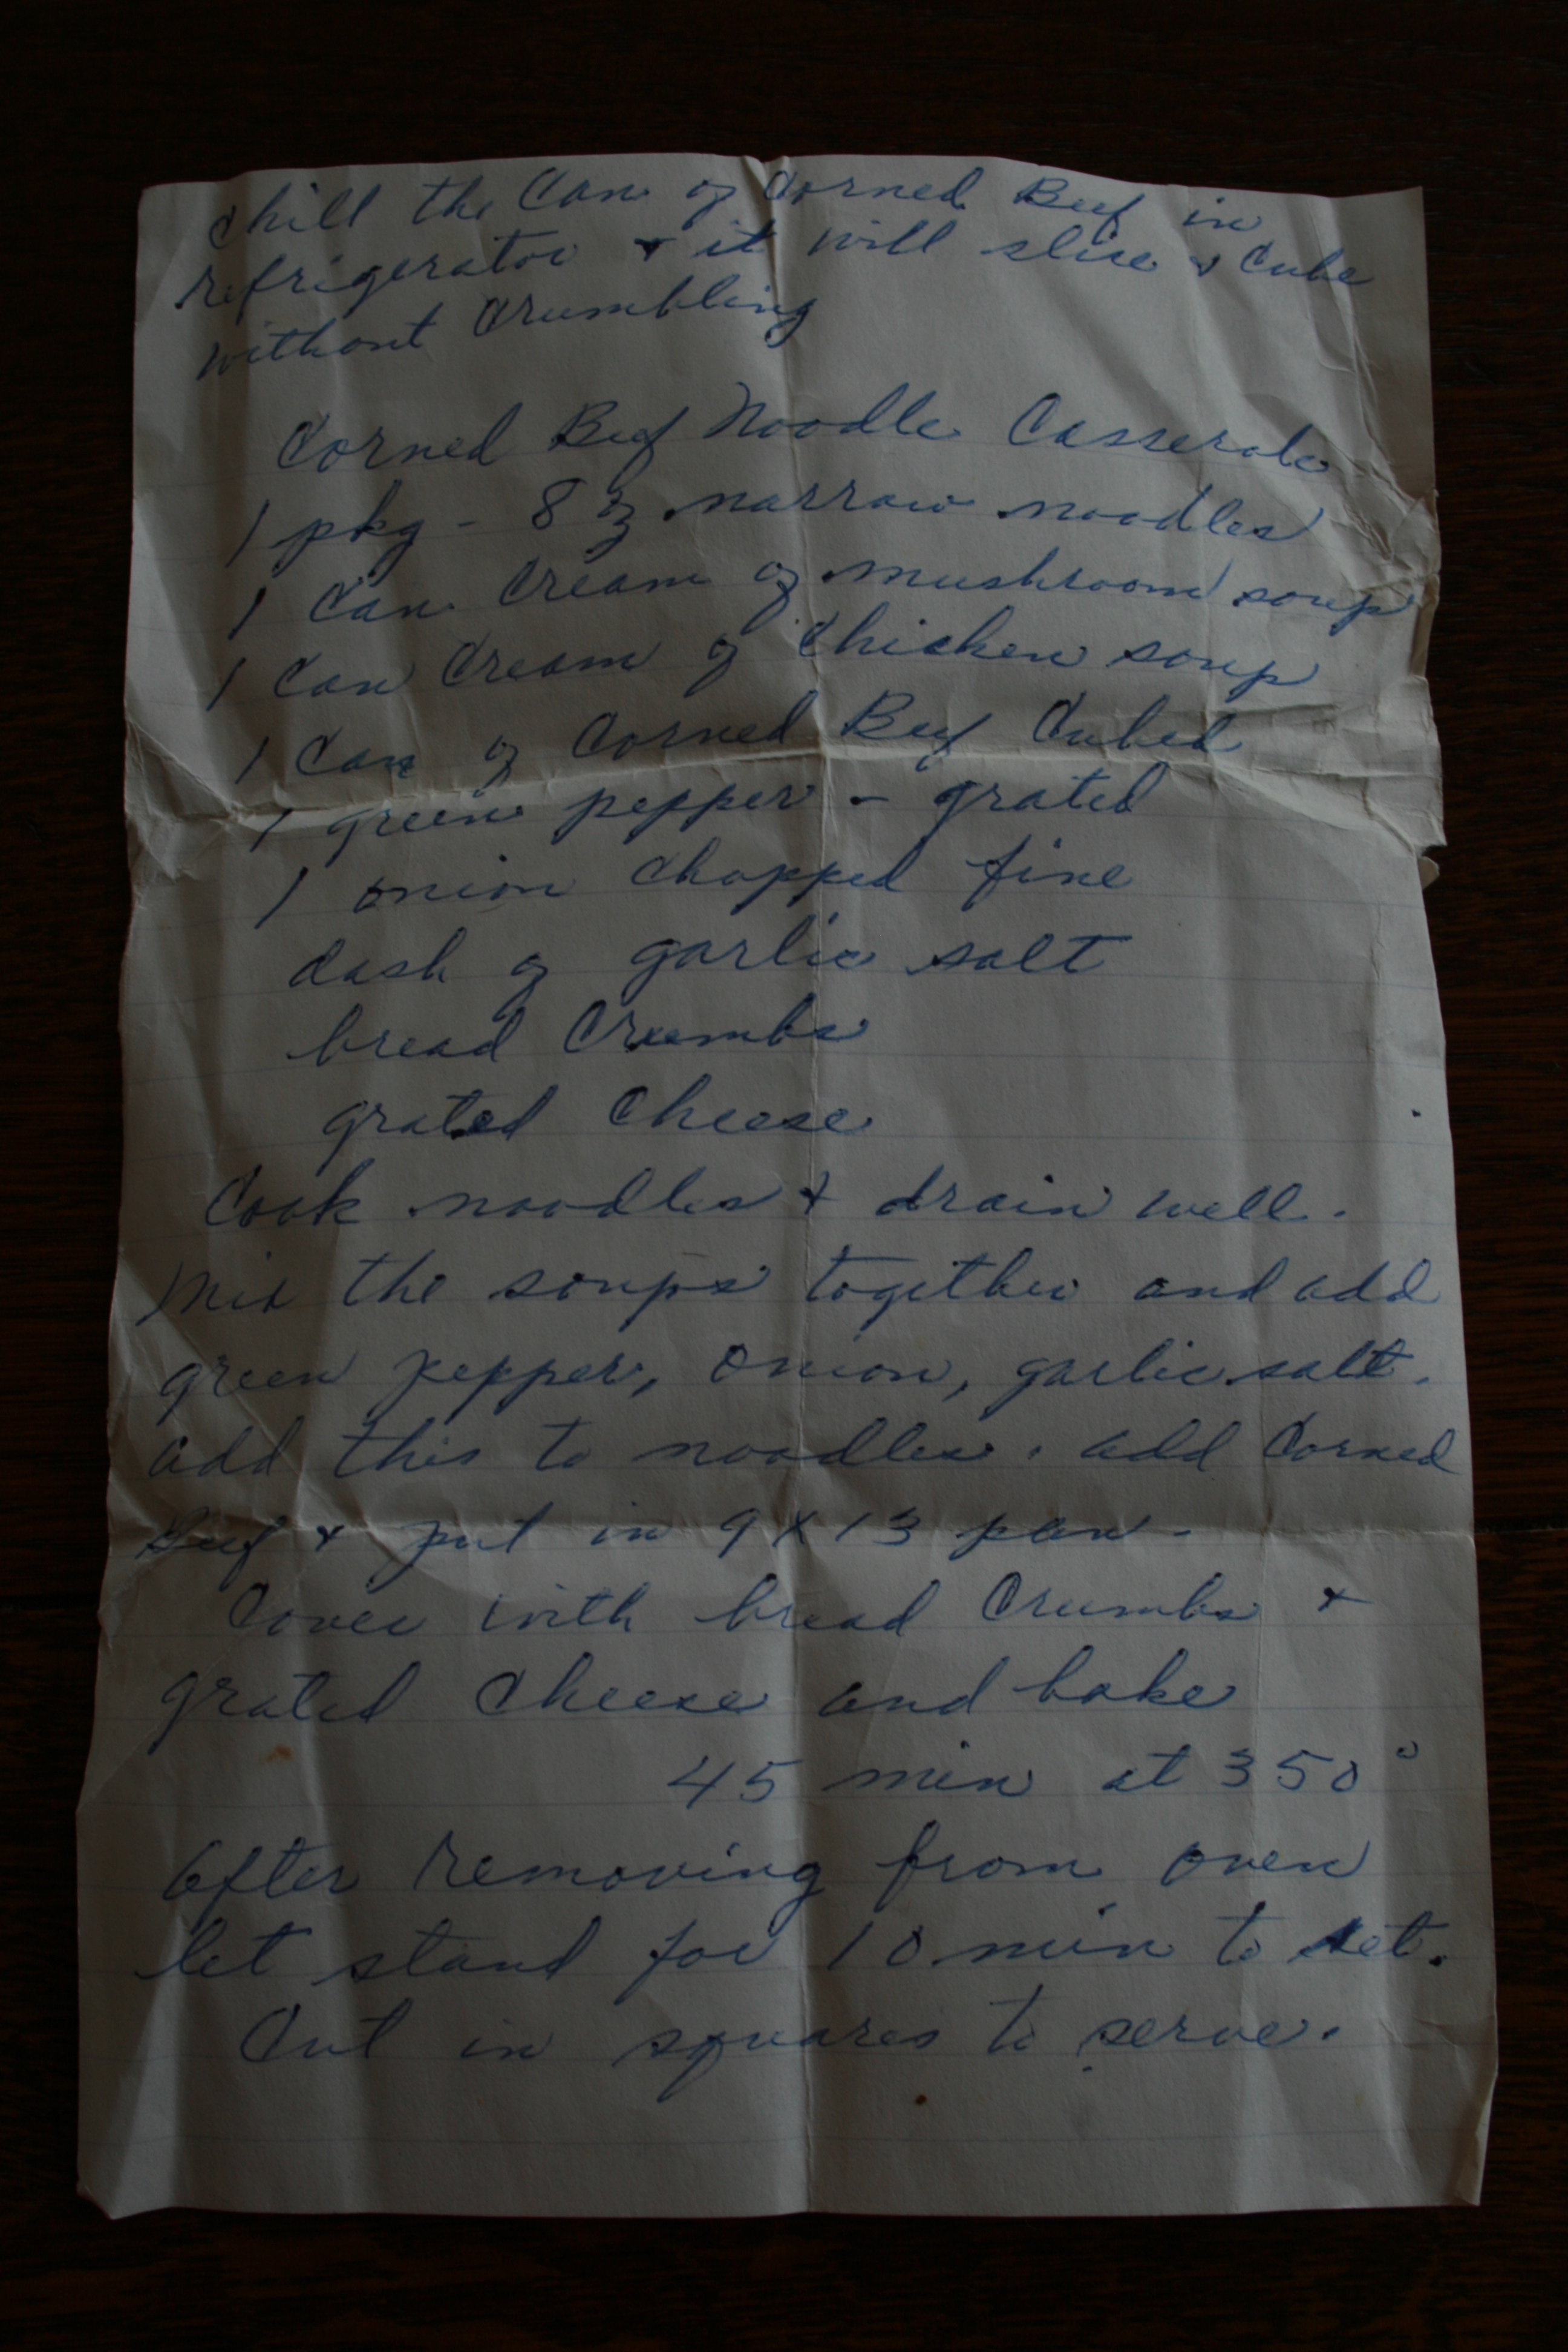 Chill the Can of Corned Beef in
refrigerator & it will slice & Cube
without Crumbling
Corned Beef Noodle Casserole
1 pkg - 8 oz narrow noodles
1 Can Cream of mushroom soup
1 Can Cream of Chicken soup
1 Can of Corned Beef Cubed
1 green pepper - grated
1 onion Chopped fine
dash of garlic salt
bread Crumbs
grated Cheese
Cook noodles & drain well.
Mix the soups together and add
green pepper, onion, garlic salt.
add this to noodles. add Corned
Beef & put in 9X13 pan.
Cover with bread Crumbs &
grated Cheese and bake
45 min at 350°
After removing from oven
let stand for 10 min to set.
Cut in squares to serve.